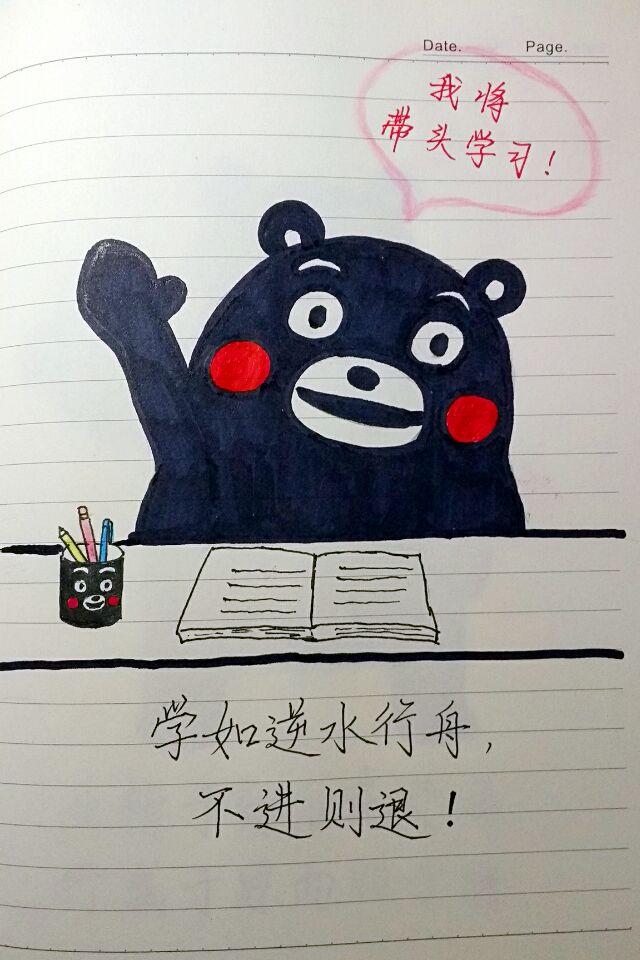 Date. Page.
我将
带头学习!
学如逆水行舟,
不进则退!